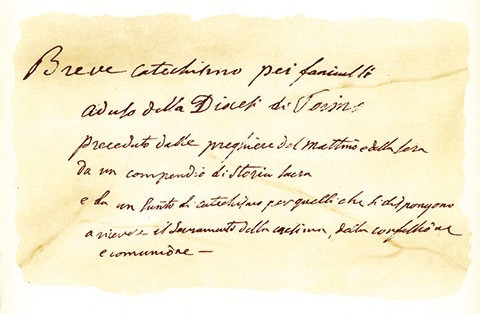 Breve catechismo pei fanciulli
ad uso della Diocesi di Torino
preceduto dalle preghiere del mattino e della sera
da un compendio di storia sacra
e da un sunto di catechismo per quelli che si dispongono
a ricevere il Sacramento della cresima, della confessione
e comunione —